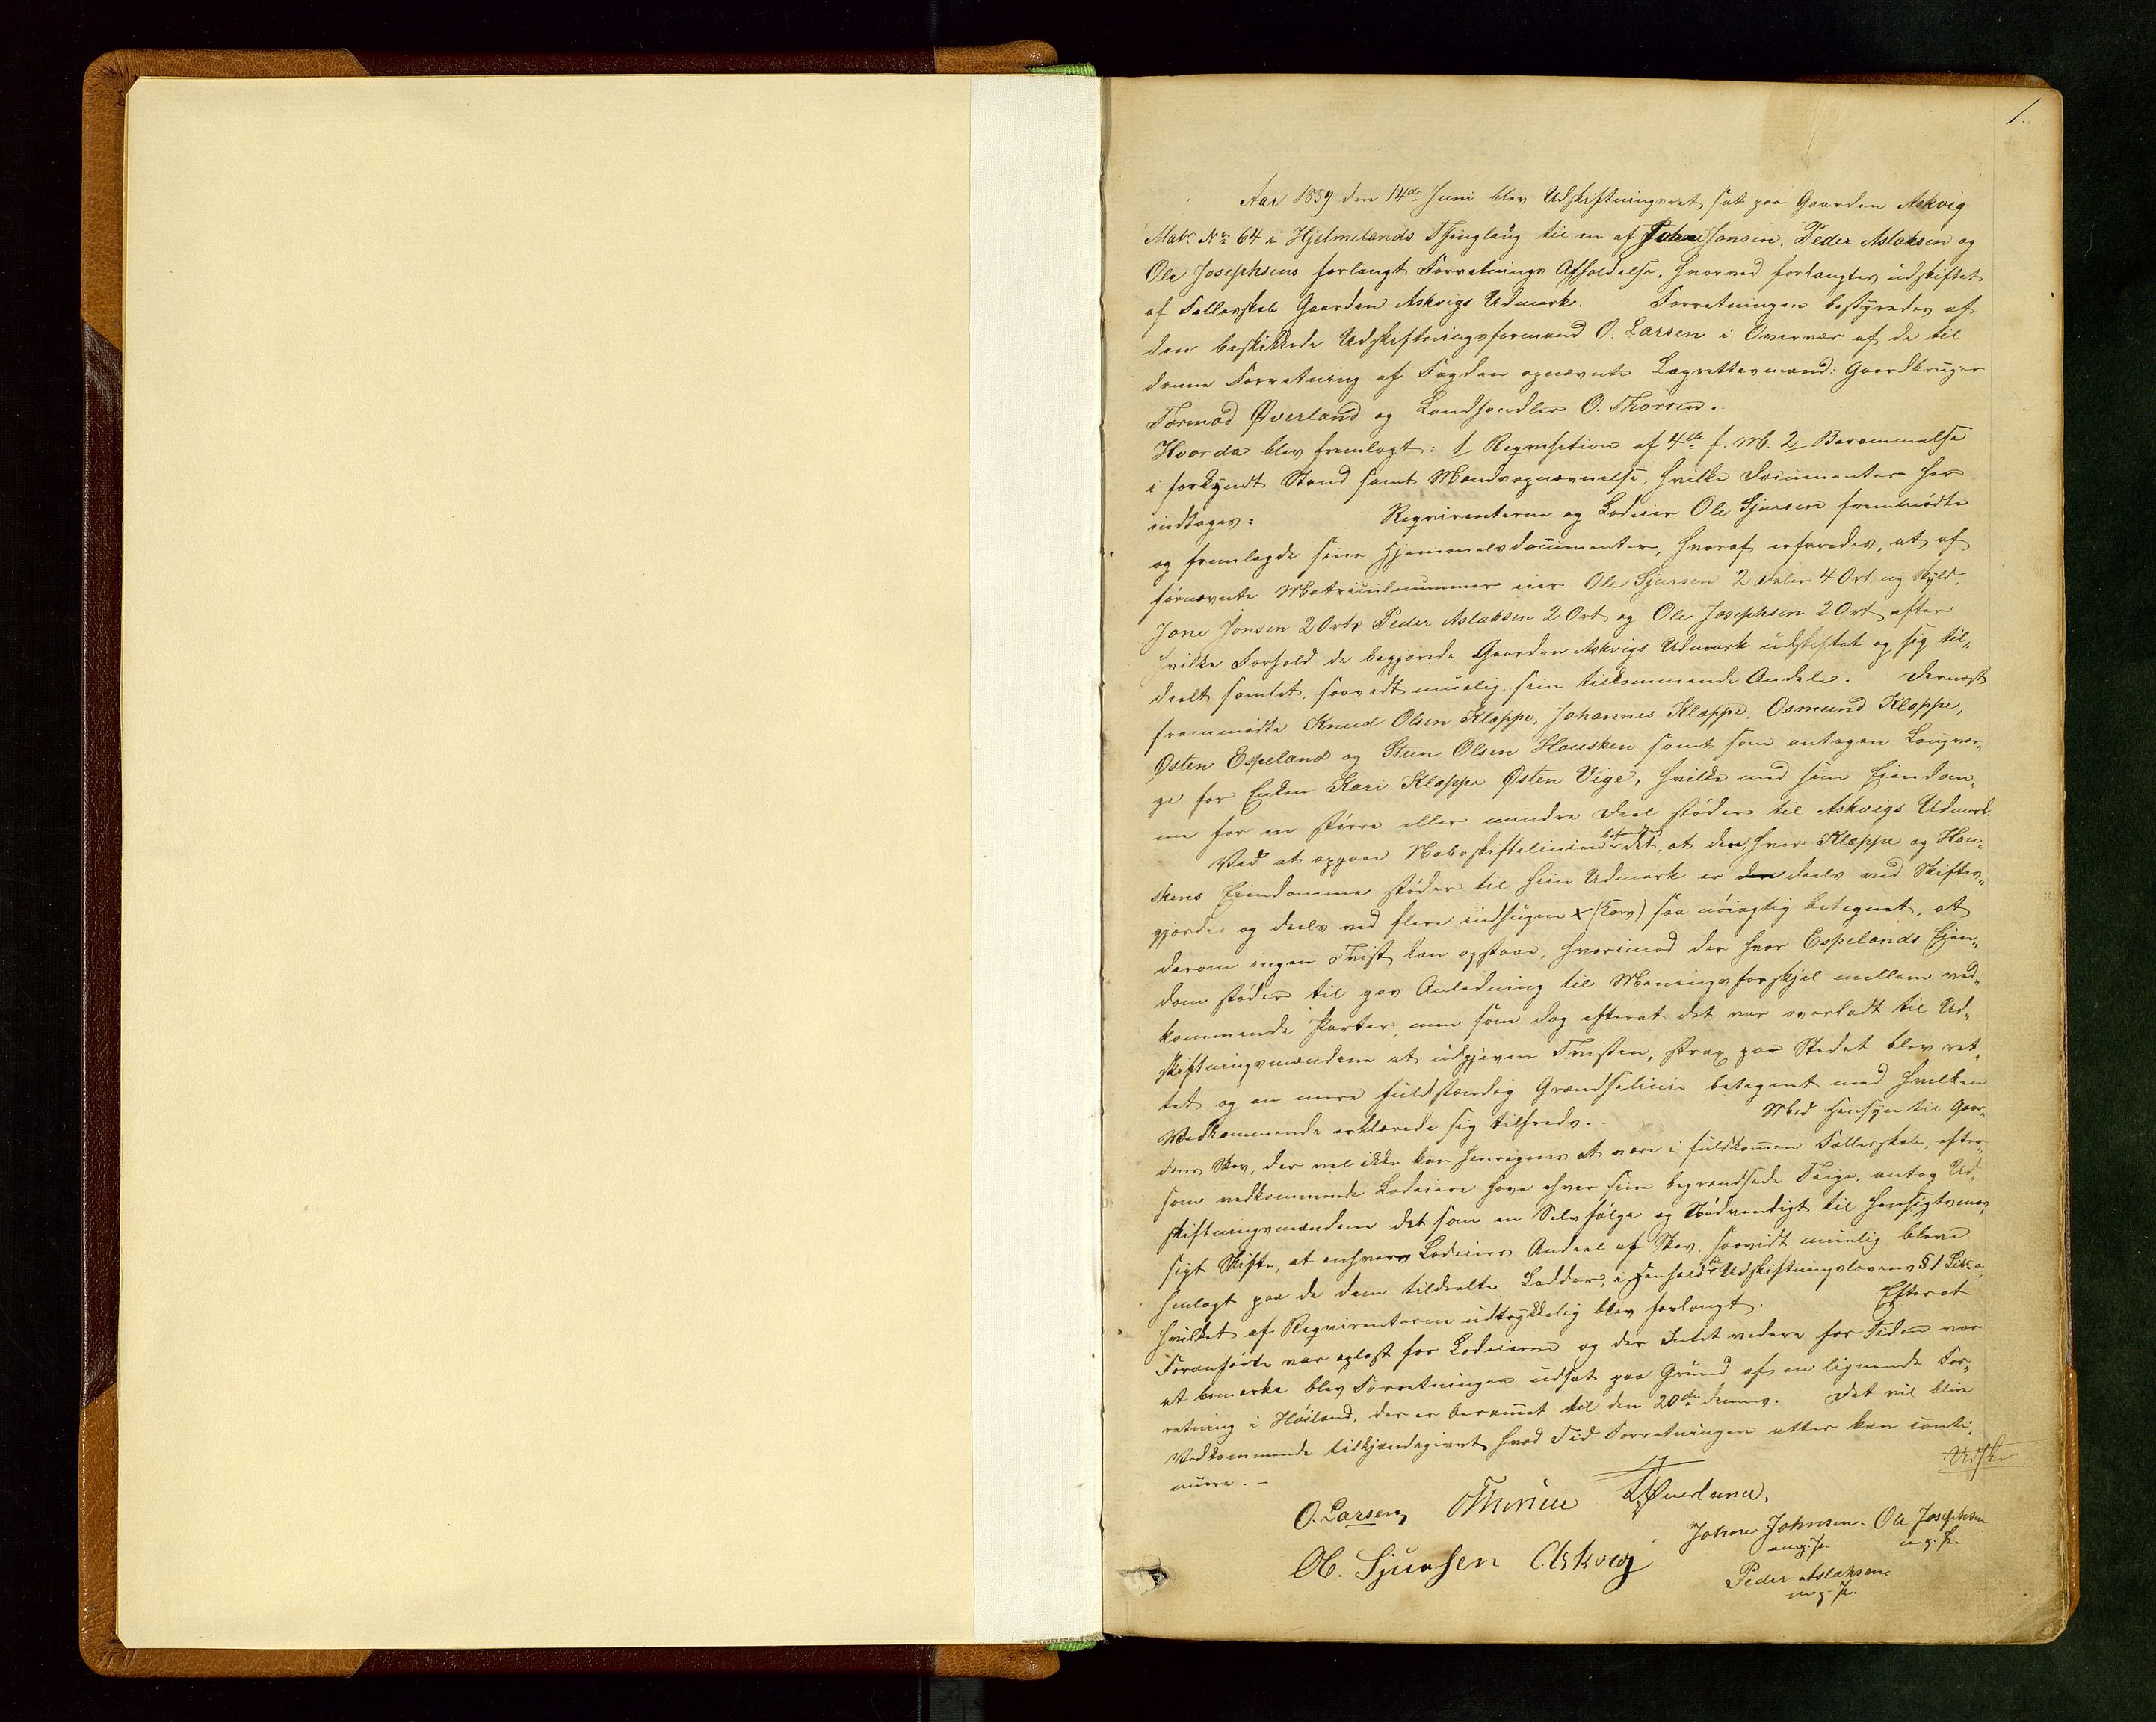 1.
Aar 1859 den 14de Juni blev Udskiftningsret sat paa Gaarden Askvig
Matr. No 64 i Hjelmelands Thinglaug til en af Johne Jonsen, Peder Aslaksen og
Ole Josephsens forlangt Forretnings Afholdelse, hvorved forlangtes udskiftet
af Fællesskab Gaarden Askvigs Udmark. Forretningen bestyredes af
den beskikkede Udskiftningsformand O. Larsen i Overvær af de til
denne Forretning af Fogden opnævnte Lagrettesmænd: Gaardbruger
Tormod Øverland og Landhandler O. Thorsen.
Hvorda blev fremlagt: 1 Reqvisition af 4de f. M. 2 Berammelse
i forkyndt Stand samt Mandsopnævnelse, hvilke Documenter her
indtages: Reqvirenterne og Lodeier Ole Sjursen fremmødte
og fremlagde sine Hjemmelsdocumenter, hvoraf erfaredes, at af
førnævnte Matriculnummer eier Ole Sjursen 2 Daler 4 Ort ny Skyld,
Jone Jonsen 2 Ort, Peder Aslaksen 2 Ort og Ole Josephsen 2 Ort efter
hvilke Forhold de begjærede Gaarden Askvigs Udmark udskiftet og sig til-
deelt samlet, saavidt muelig sine tilkommende Andele. Dernæst
fremmødte Knud Olsen Kleppe, Johannes Kleppe, Osmund Kleppe,
Østen Espeland og Steen Olsen Housken samt som antagen Laugvær-
ge for Enken Kari Kleppe Østen Vige, hvilke med sine Eiendom-
me for en større eller mindre Deel støder til Askvigs Udmark.
Ved at opgaae Naboskiftelinien befandtes det, at der, hvor Kleppe og Hou-
skens Eiendomme støder til hiin Udmark er den deels ved Skiftes-
gjerder og deels ved flere indhugne x (Kors) saa nøiagtig betegnet, at
derom ingen Tvist kan opstaae, hvorimod der hvor Espelands Eien-
dom støder til gav Anledning til Meningsforskjel mellem ved-
kommende Parter, men som dog efterat det var overladt til Ud-
skiftningsmændene at udgjevne Tvisten, strax paa Stedet blev ret-
tet og en mere fuldstændig Grændselinie betegnet med hvilken
Vedkommende erklærede sig tilfreds. Med Hensyn til Gaar-
dens Skov, der vel ikke kan henregnes at være i fuldkommen Fællesskab, efter-
som vedkommende Lodeiere have hver sine begrændsede Teige, antog Ud-
skiftningsmændene det som en Selvfølge og Nødvendigt til hensigtsmæs-
sigt Skifte, at enhver Lodeiers Andeel af Skov, saavidt muelig bleve
henlagt paa de dem tildeelte Lodder, i Henhold til Udskiftningslovens § 1 Litr a,
hvilket af Reqvirenterne udtrykkelig blev forlangt. Efterat
Foranførte var oplæst for Lodeierne og der Intet videre for Tiden var
at bemærke blev Forretningen udsat paa Grund af en lignende For-
retning i Høiland, der er berammet til den 20de dennes. Det vil blive
Vedkommende tilkjendegivet hvad Tid Forretningen atter kan conti-
nuere. —
O. Larsen OThorsen TTØverland,
Ol. Sjursen Askvig Johne Johnsen. Ole Josephsen
m.p.P. m.p.P.
Peder Aslaksen
m.p.P.